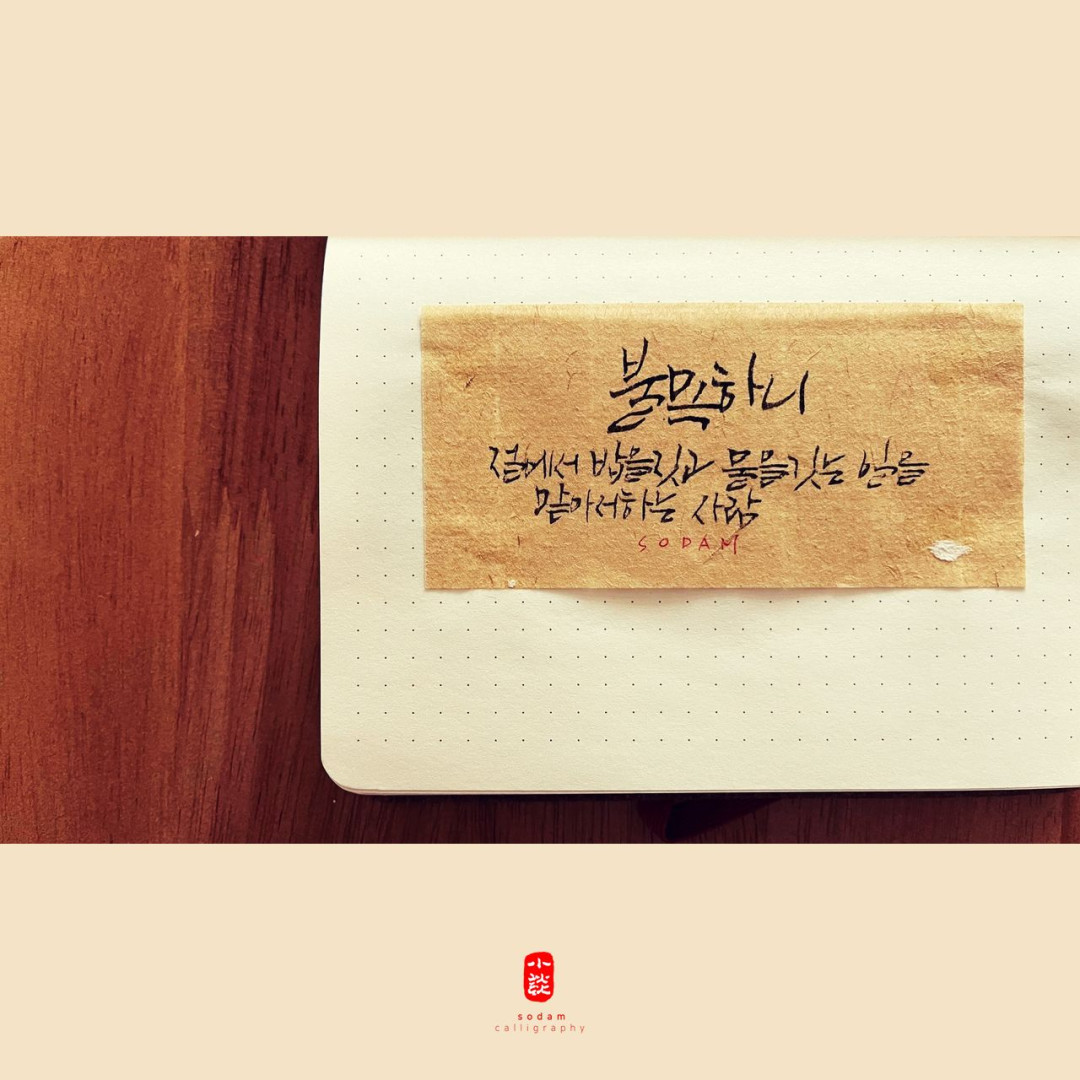 불목하니
절에서 밥을짓고 물을긷는 일을
맡아서하는 사람
SODAM
小
談
sodam
calligraphy